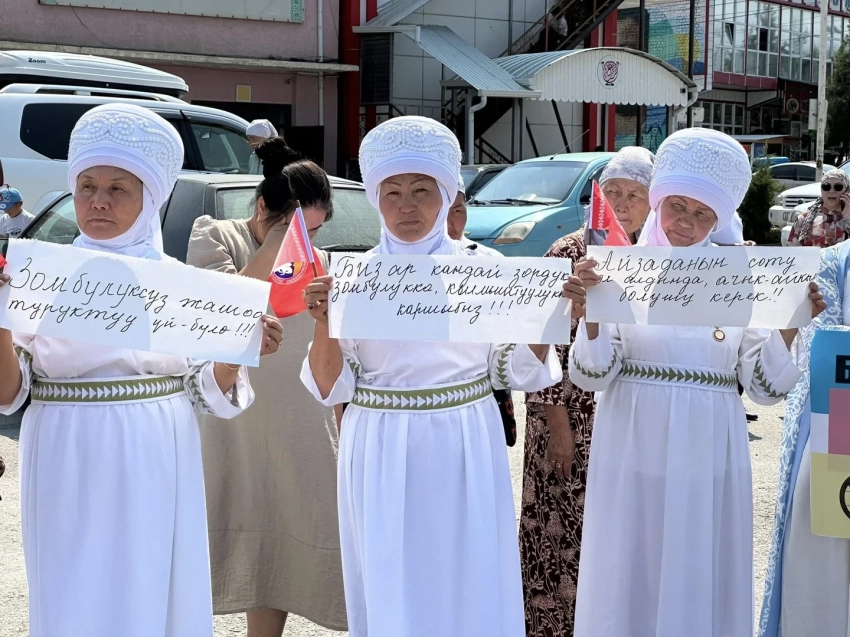 Zoom
Зомбулуксуз жашоо
туруктуу үй-бүлө !!!
Биз ар кандай зордук
зомбулукка, кылмыштуулукка
каршыбыз !!!
Айзаданын соту
эл алдында, ачык-айкын
болушу керек!!
Б